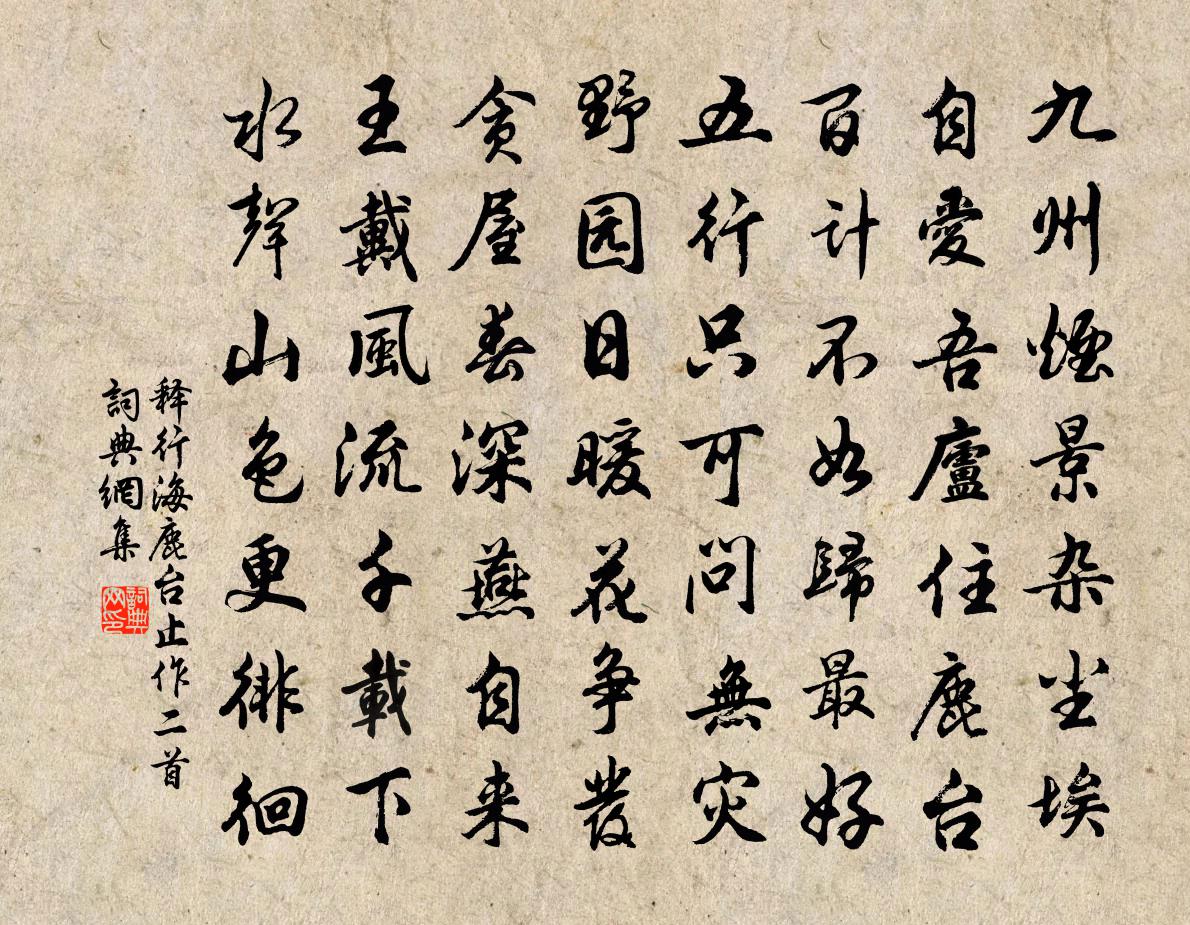 九州煙景杂尘埃
自愛吾廬住鹿台
百计不如歸最好
五行只可问無灾
野园日暖花争發
贪屋春深燕自来
王戴風流千載下
水聲山色更徘徊
释行海鹿台止作二首
詞典網集
詞典網印